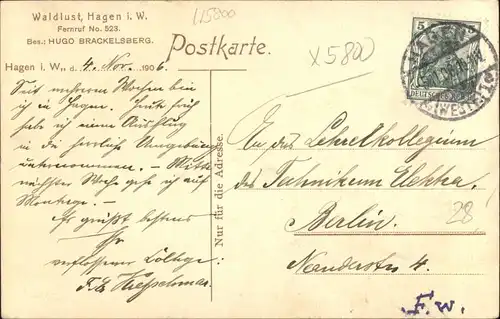 Waldlust, Hagen i. W.
Fernruf No. 523.
Bes.: HUGO BRACKELSBERG.
Postkarte.
L15800
X5800
Hagen i. W., d. 4. Nov. 1906.
Seit mehreren Wochen bin
ich in Hagen. Heute früh
habe ich einen Ausflug
in die herrliche Umgebung
unternommen. — Mitte
nächster Woche gehe ich auf
Montage. —
Es grüßt bestens
Ihr
verflossener College:
Nur für die Adresse.
5
DEUTSCHES
HAGEN
(WESTF.)
An das Lehrerkollegium
des Technikum Elektra.
Berlin.
Neanderstr 4.
28
F. W.